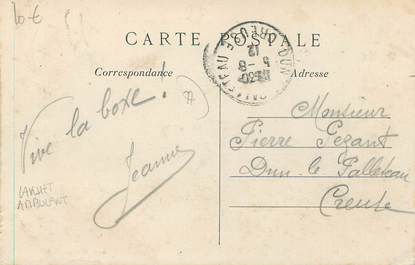 10 €
CARTE POSTALE
Correspondance
Adresse
DUN LE PALLETEAU
CREUSE
Vive la boxe !
Jeanne
Monsieur
Pierre Pezant
Dun-le Palleteau
Creuse
CACHET
AMBULANT